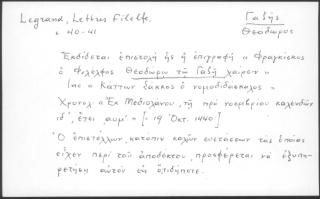 Legrand, Lettres Filelfe. Γαζῆς
σ. 40-41 Θεόδωρος
Ἐκδίδεται ἐπιστολὴ ἧς ἡ ἐπιγραφὴ « Φραγκίσκος
ὁ Φιλέλφος Θεοδώρῳ τῷ Γαζῇ χαίρειν »
Inc « Κάττων Σάκκος ὁ νομοδιδάσκαλος »
Χρονολ. « Ἐκ Μεδιολάνου, τῇ πρὸ νοεμβρίου καλενδῶν
ιδ΄, ἔτει, αυμ΄ » [= 19 Ὀκτ. 1440]
Ὁ ἐπιστέλλων, κατόπιν καλῶν συστάσεων τὰς ὁποίας
εἶχεν περὶ τοῦ ἀποδέκτου, προσφέρεται νὰ ἐξυπη-
ρετήσῃ αὐτὸν ἐν ὁτιδήποτε.